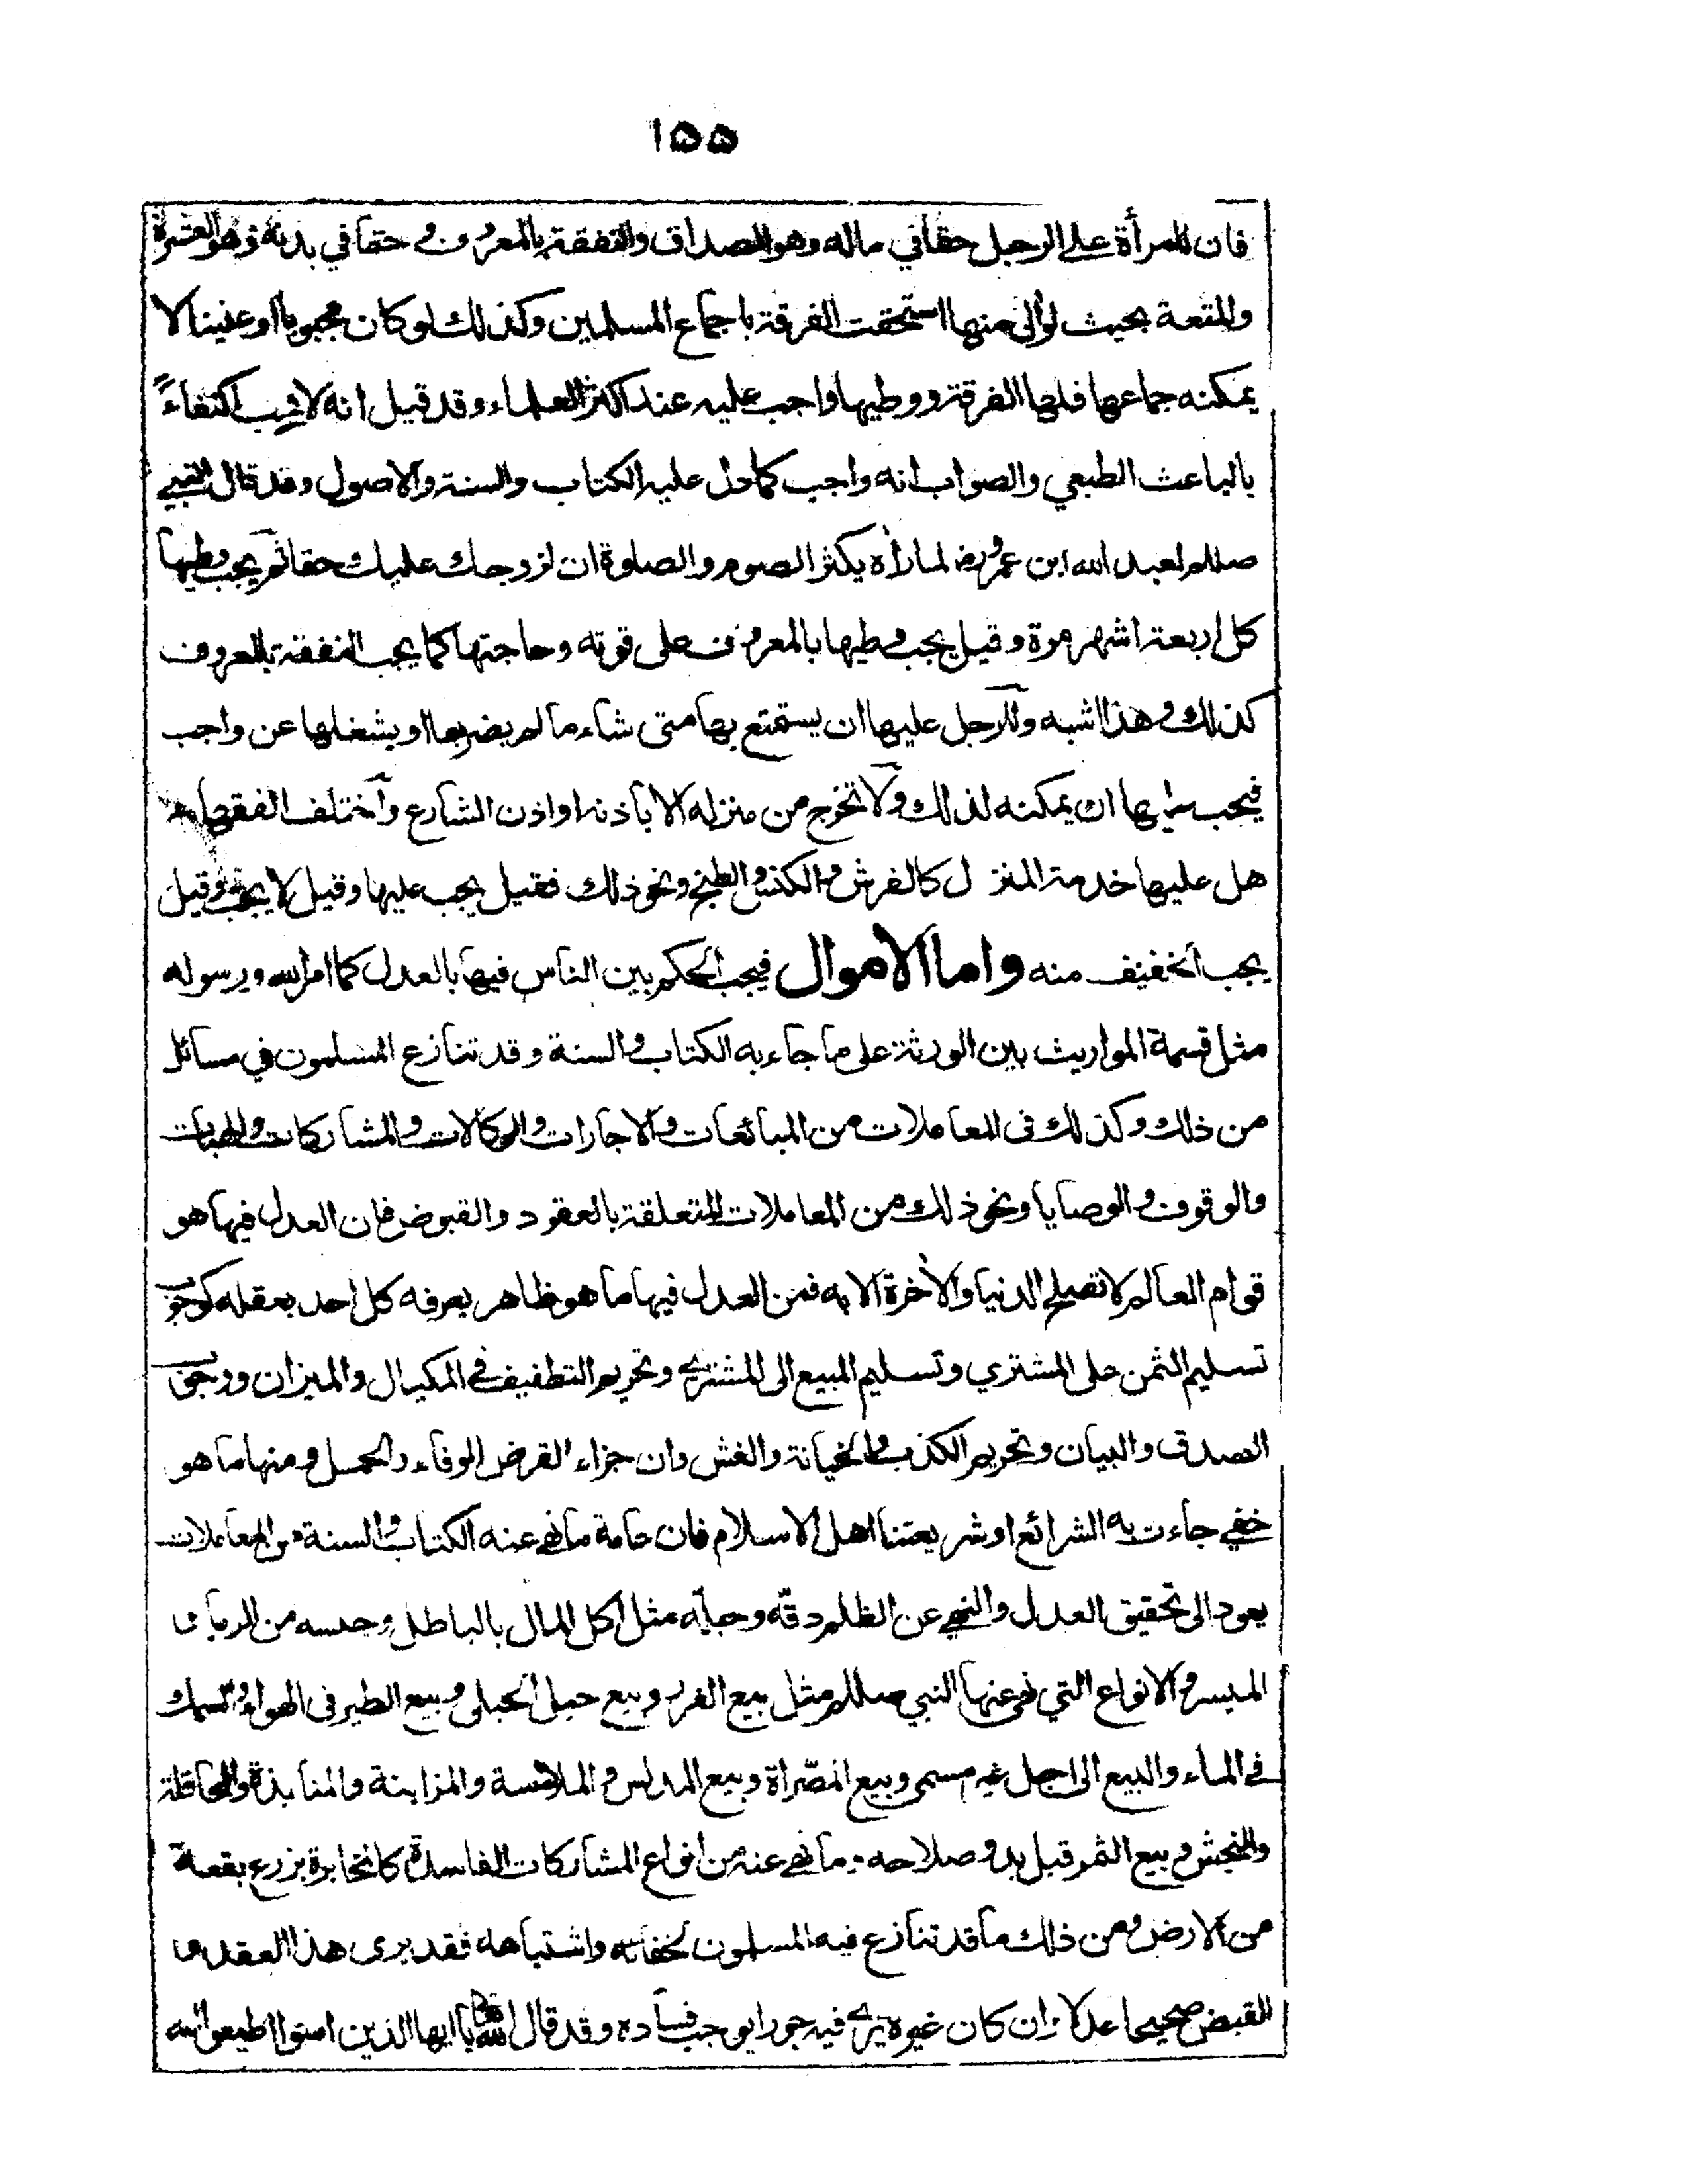 ١٥٥
فان للمرأة على الرجل حقا في ماله وهو الصداق والنفقة بالمعروف و حقا في بدنه وهو العشرة
والمتعة بحيث لو آلى منها استحقت الفرقة باجماع المسلمين وكذلك لو كان مجبوبا او عنينا لا
يمكنه جماعها فلها الفرقة ووطيها واجب عليه عند اكثر العلماء وقد قيل انه لا يجب اكتفاءً
بالباعث الطبعي والصواب انه واجب كما دل عليه الكتاب والسنة والاصول وقد قال النبي
صللم لعبد الله ابن عمرو رض لما رأه يكثر الصوم والصلوة ان لزوجك عليك حقا ثم يجب وطيها
كل اربعة اشهر مرة وقيل يجب وطيها بالمعروف على قوته وحاجتها كما يجب النفقة بالمعروف
كذلك وهذا اشبه وللرجل عليها ان يستمتع بها متى شاء ما لم يضر بها او يشغلها عن واجب
فيجب عليها ان يمكنه لذلك ولا تخرج من منزله الا باذنه او اذن الشارع واختلف الفقهاء
هل عليها خدمة المنزل كالفرش والكنس والطبخ ونحو ذلك فقيل يجب عليها وقيل لا يجب وقيل
يجب الخفيف منه واما الاموال فيجب الحكم بين الناس فيها بالعدل كما امر الله ورسوله
مثل قسمة المواريث بين الورثة على ما جاء به الكتاب والسنة وقد تنازع المسلمون في مسائل
من ذلك وكذلك في المعاملات من المبائعات والاجارات والوكالات والمشاركات والهبات
والوقوف والوصايا ونحو ذلك من المعاملات المتعلقة بالعقود والقبوض فان العدل فيها هو
قوام العالم لا تصلح الدنيا والأخرة الا به فمن العدل فيها ما هو ظاهر يعرفه كل احد بعقله كوجوب
تسليم الثمن على المشتري وتسليم المبيع الى المشتري وتحريم التطفيف في المكيال والميزان ووجوب
الصدق والبيان وتحريم الكذب والخيانة والغش وان جزاء القرض الوفاء والحمل ومنها ما هو
خفي جاءت به الشرائع او شريعتنا اهل الاسلام فان عامة ما نهى عنه الكتاب والسنة من المعاملات
يعود الى تحقيق العدل والنهي عن الظلم دقّه وجلّه مثل اكل المال بالباطل وجنسه من الربا و
الميسر والانواع التي نهى عنها النبي صللم مثل بيع الغرر وبيع حبل الحبلى وبيع الطير فى الهواء والسمك
في الماء والبيع الى اجل غير مسمى وبيع المصّراة وبيع المدلس والملامسة والمزابنة والمنابذة والمحاقلة
والنجش و بيع الثمر قبل بدو صلاحه وما نهى عنه من انواع المشاركات الفاسدة كالمخابرة بزرع بقعة
من الارض ومن ذلك ما قد تنازع فيه المسلمون لخفائه واشتباهه فقد يرى هذا العقد و
القبض صحيحا عدلا وان كان غيره يرى فيه جورا يوجب فساده وقد قال الله تعالى يا ايها الذين امنوا اطيعوا الله